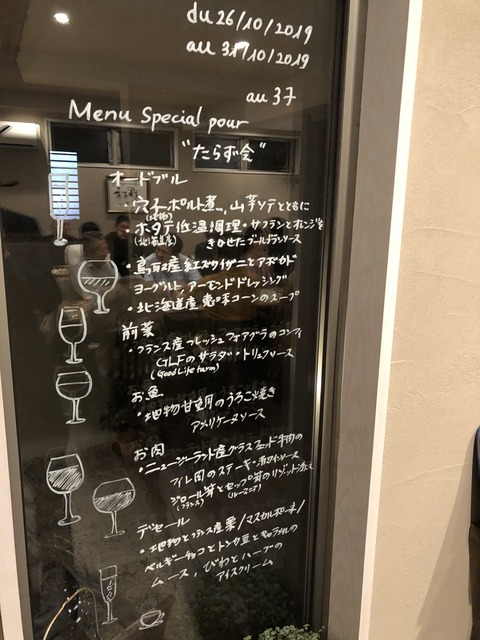 du 26/10/2019
au 31/10/2019
au 37
Menu Special pour
"たらず会"
オードブル
・穴子ポルト煮、山芋ソテとともに
・ホタテ低温調理・サフランとオレンジを
(北海道産)
きかせたブールブランソース
・鳥取産紅ズワイガニとアボカド
ヨーグルト、アーモンドドレッシング
・北海道産恵味コーンのスープ
前菜
・フランス産フレッシュフォアグラのコンフィ
GLFのサラダ・トリュフソース
(Good Life farm)
お魚
・地物甘鯛のうろこ焼き
アメリケーヌソース
お肉
・ニュージーランド産グラスフェッド牛の
フィレ肉のステーキ・赤ワインソース
ジロール茸とセップ茸のリゾット添え
(フランス)
(ルーマニア)
デセール
・地物とフランス産栗/マスカルポーネ/
ベルギーチョコとトンカ豆とキャラメルの
ムース、びわとハーブの
アイスクリーム